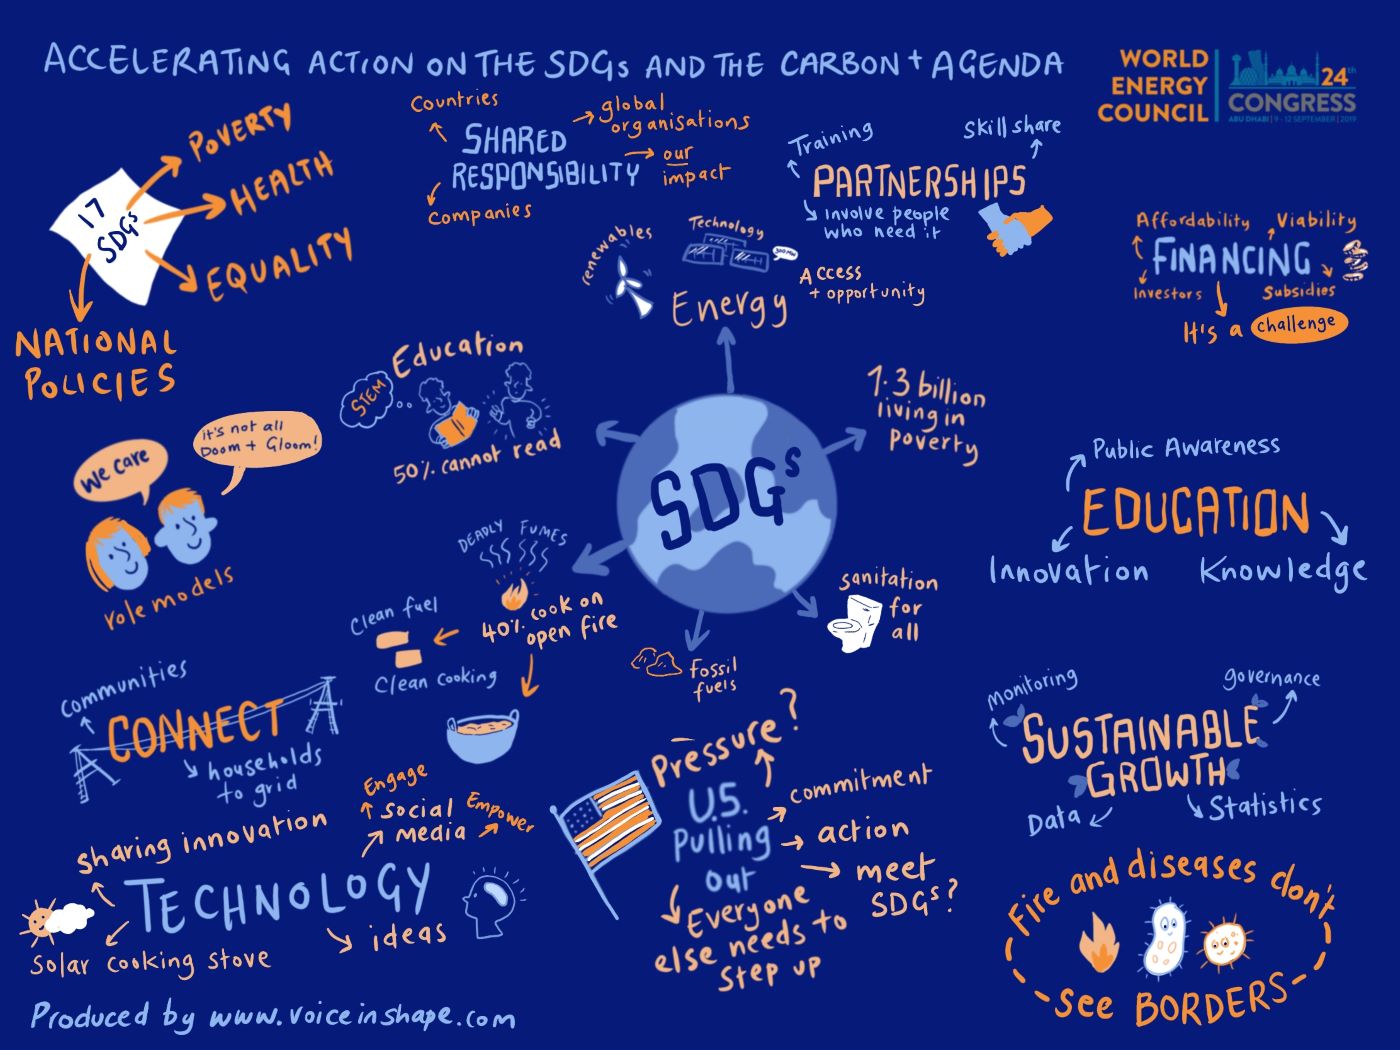 ACCELERATING ACTION ON THE SDGs AND THE CARBON + AGENDA
WORLD
ENERGY
COUNCIL
24th
CONGRESS
ABU DHABI | 9 - 12 SEPTEMBER | 2019
17
SDGs
POVERTY
HEALTH
EQUALITY
NATIONAL
POLICIES
Countries
SHARED
RESPONSIBILITY
global
organisations
our
impact
Companies
Training
Skill share
PARTNERSHIPS
involve people
who need it
Affordability
Viability
FINANCING
Investors
Subsidies
It's a challenge
renewables
Technology
Access
+ opportunity
Energy
Education
STEM
50% cannot read
1.3 billion
living in
poverty
SDGs
We care
it's not all
Doom + Gloom!
role models
Public Awareness
EDUCATION
Innovation
Knowledge
DEADLY FUMES
40% cook on
open fire
Clean fuel
Clean cooking
sanitation
for
all
Fossil
fuels
communities
CONNECT
households
to grid
monitoring
governance
SUSTAINABLE
GROWTH
Data
Statistics
Pressure?
U.S.
Pulling
out
commitment
action
meet
SDGs?
Everyone
else needs to
step up
Engage
Social
media
Empower
sharing innovation
TECHNOLOGY
ideas
Solar cooking stove
Fire and diseases don't
see BORDERS
Produced by www.voiceinshape.com